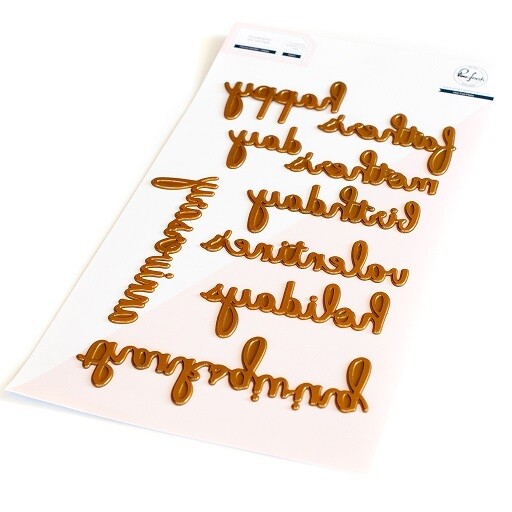 happy
father's
day
mother's
birthday
valentine's
holidays
anniversary
thanksgiving